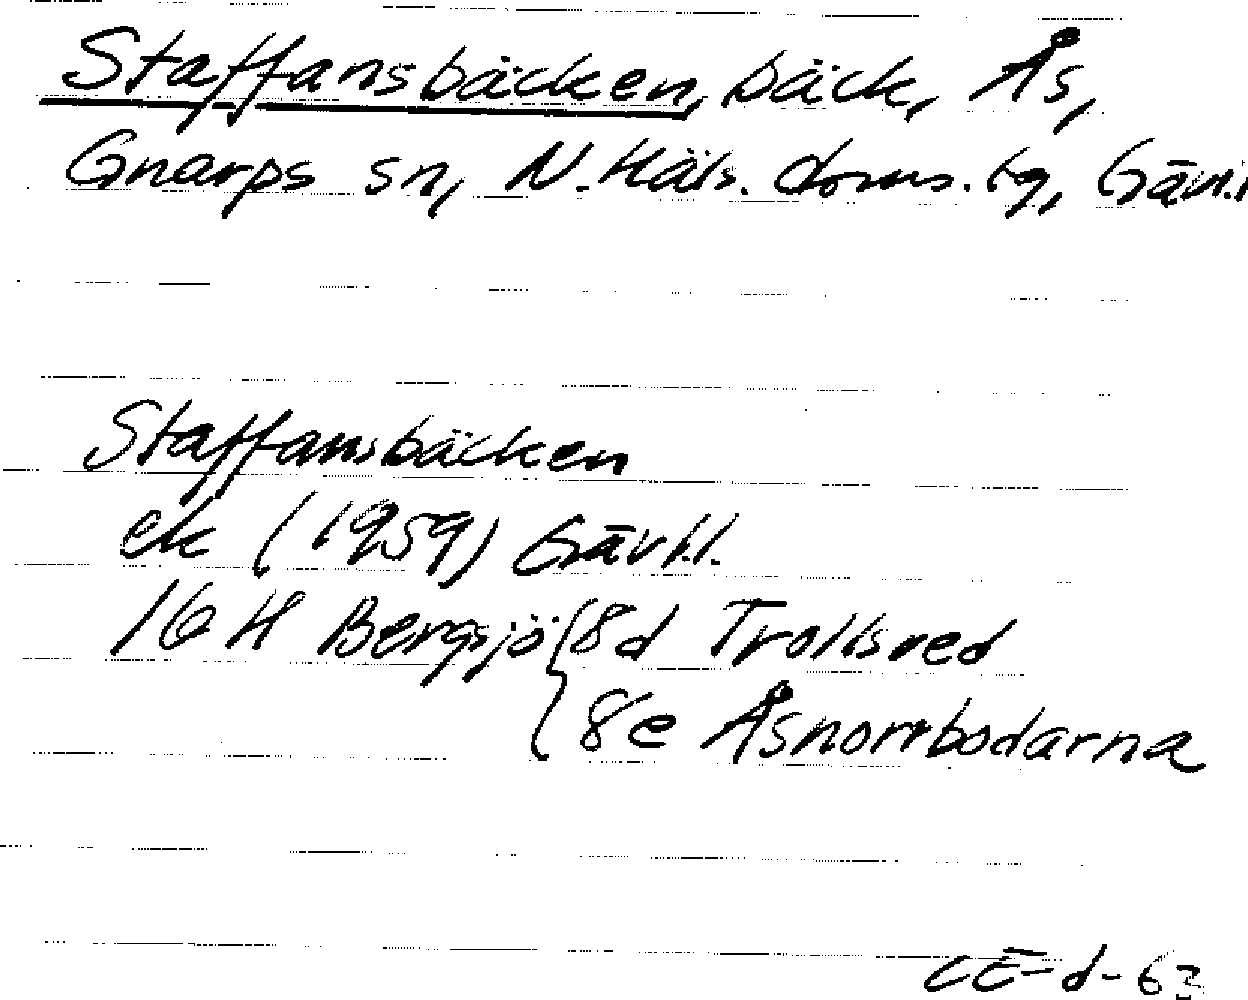 Staffansbäcken, bäck, Ås,
Gnarps sn, N. Häls. doms. tg, Gävl.l
Staffansbäcken
ek (1959) Gävl.l.
16 H Bergsjö { 8d Trollsved
8e Åsnorrbodarna
CE-d-63